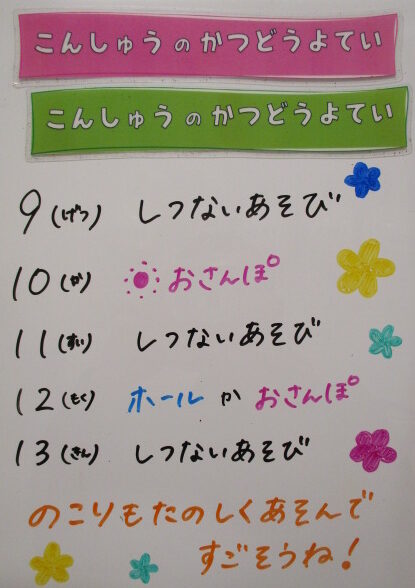 こんしゅうのかつどうよてい
こんしゅうのかつどうよてい
9(げつ) しつないあそび
10(か) おさんぽ
11(すい) しつないあそび
12(もく) ホールかおさんぽ
13(きん) しつないあそび
のこりもたのしくあそんで
すごそうね!